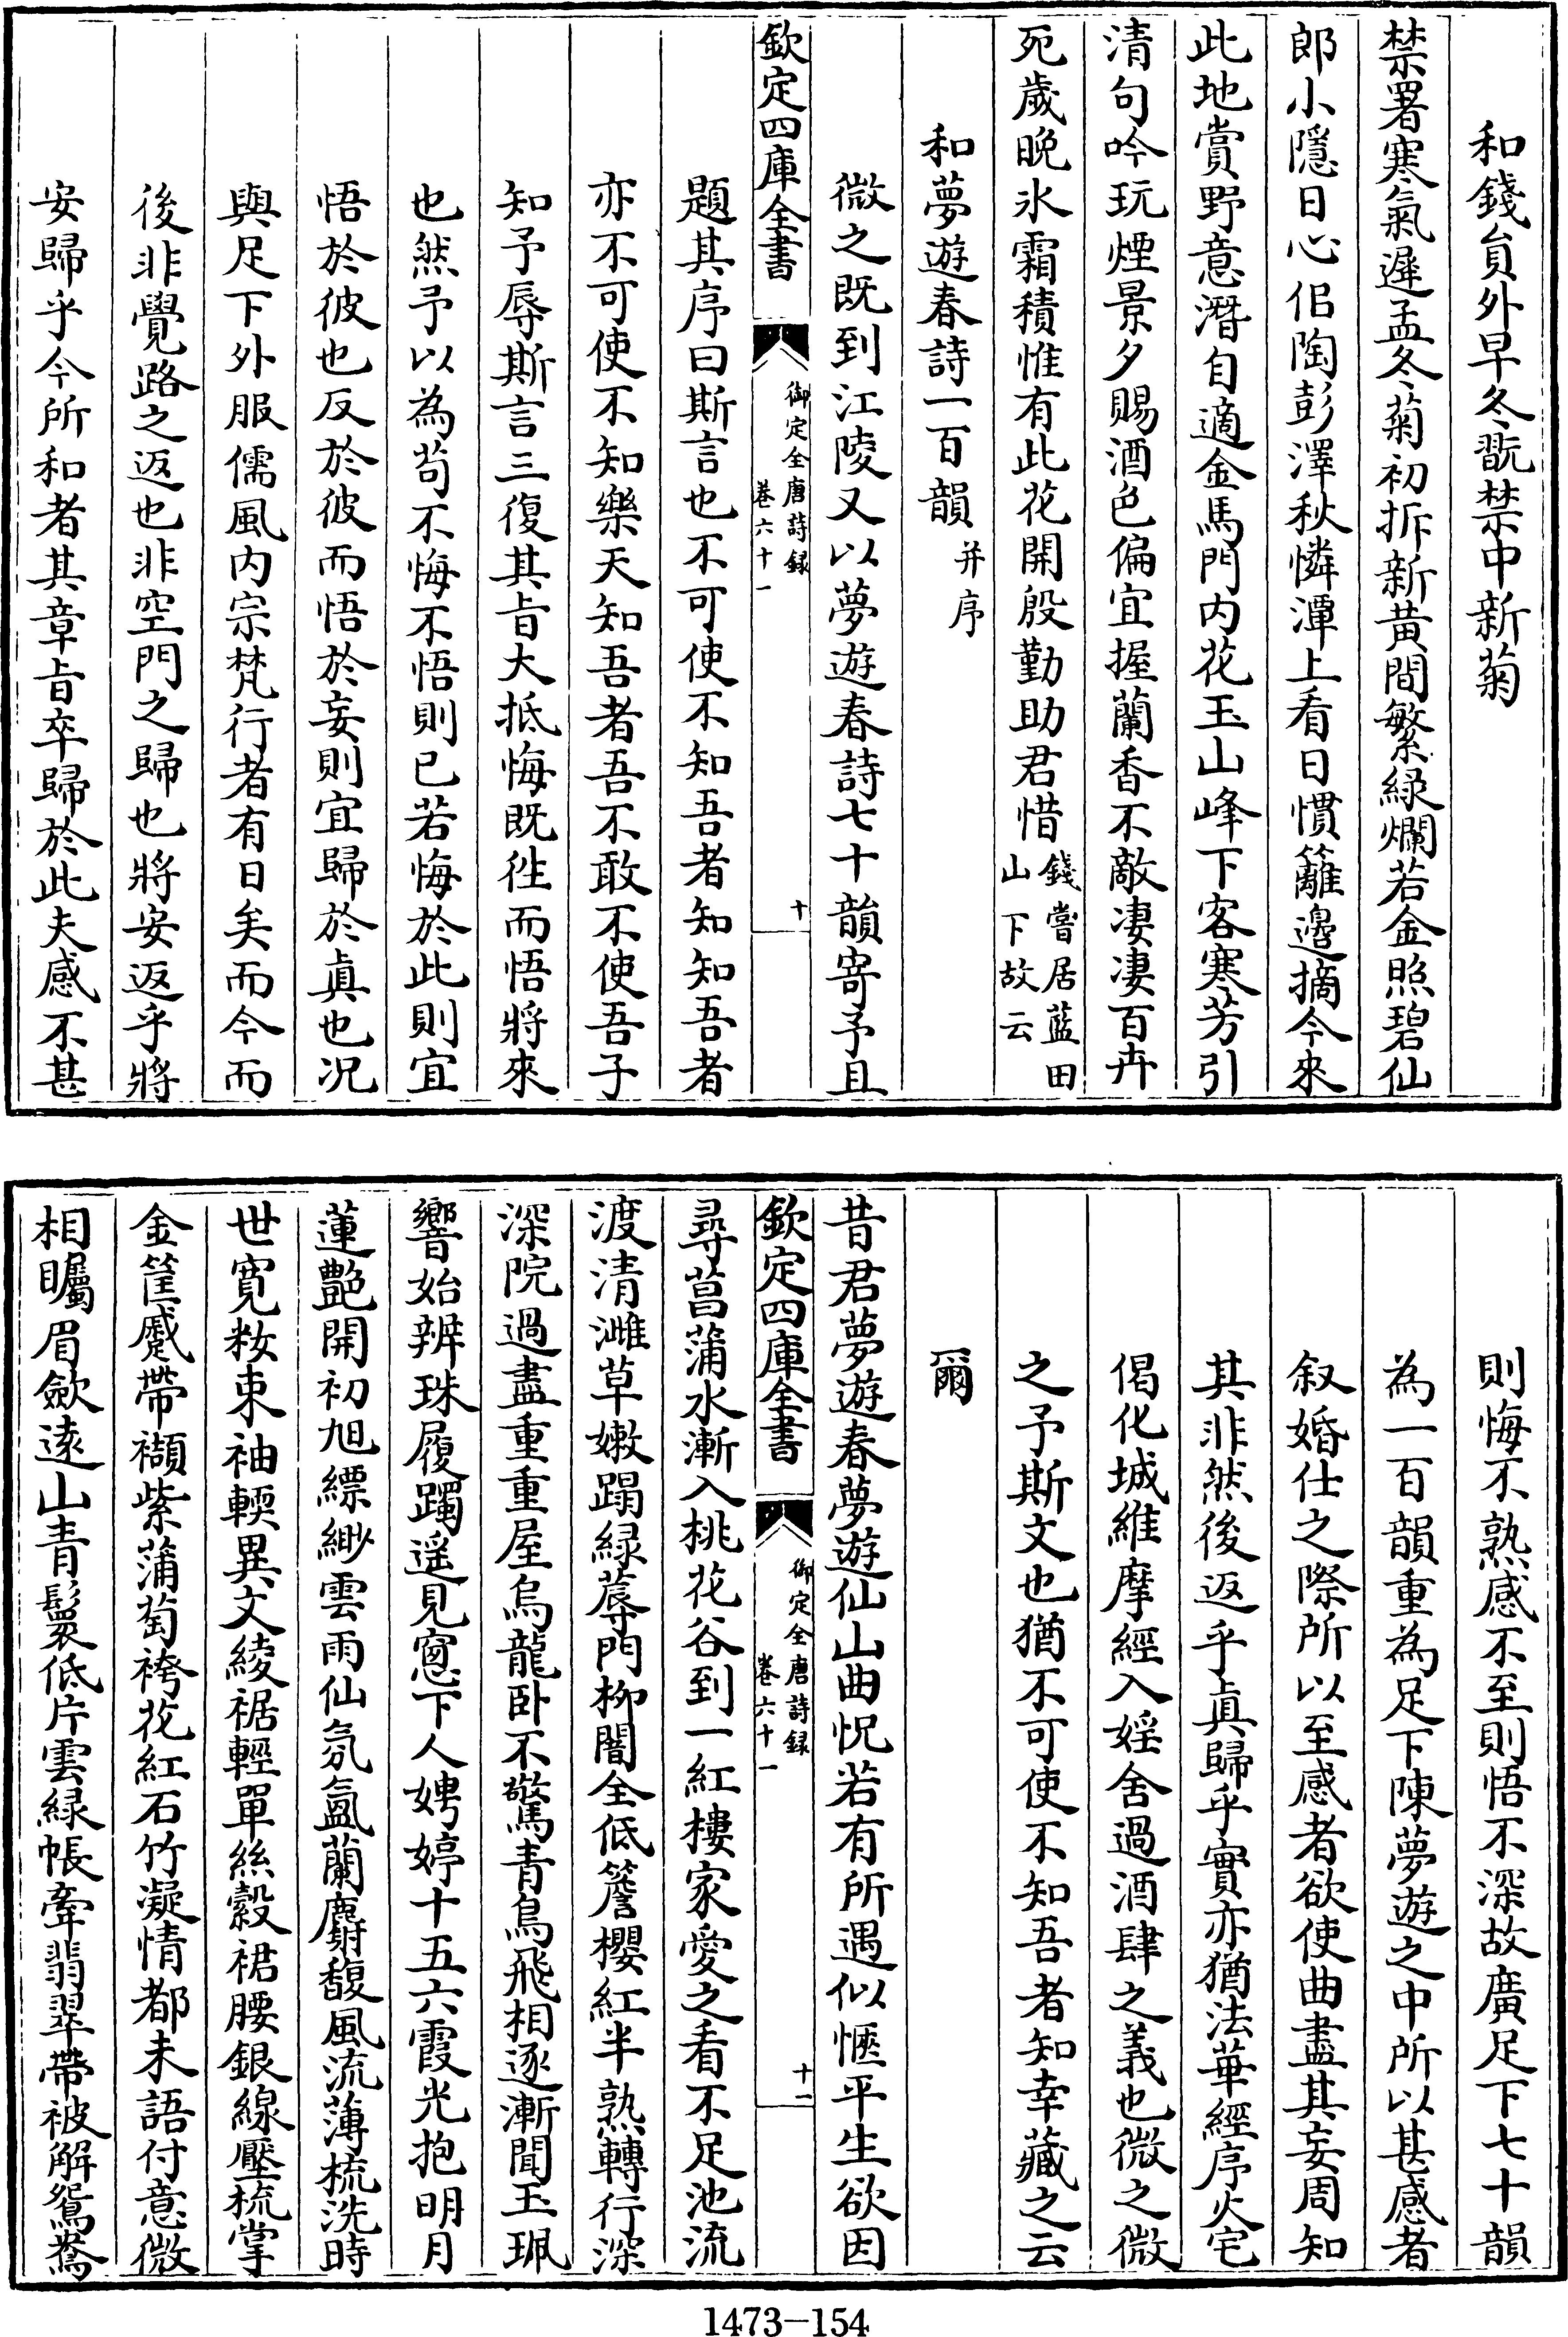 和錢員外早冬翫禁中新菊
禁署寒氣遲孟冬菊初拆新黃間繁緑爛若金照碧仙
郎小隱日心侶陶彭澤秋憐潭上看日慣籬邉摘今來
此地賞野意潛自適金馬門内花玉山峰下客寒芳引
清句吟玩煙景夕賜酒色偏宜握蘭香不敵凄凄百卉
死歲晚氷霜積惟有此花開殷勤助君惜錢嘗居藍田
山下故云
和夢遊春詩一百韻并序
微之既到江陵又以夢遊春詩七十韻寄予且
欽定四庫全書
御定全唐詩録
卷六十一
十
題其序曰斯言也不可使不知吾者知知吾者
亦不可使不知樂天知吾者吾不敢不使吾子
知予辱斯言三復其旨大抵悔既徃而悟將來
也然予以為苟不悔不悟則已若悔於此則宜
悟於彼也反於彼而悟於妄則宜歸於眞也况
與足下外服儒風内宗梵行者有日矣而今而
後非覺路之返也非空門之歸也將安返乎將
安歸乎今所和者其章旨卒歸於此夫感不甚
則悔不熟感不至則悟不深故廣足下七十韻
為一百韻重為足下陳夢遊之中所以甚感者
叙婚仕之際所以至感者欲使曲盡其妄周知
其非然後返乎眞歸乎實亦猶法華經序火宅
偈化城維摩經入婬舍過酒肆之義也微之微
之予斯文也猶不可使不知吾者知幸藏之云
爾
昔君夢遊春夢遊仙山曲怳若有所遇似愜平生欲因
欽定四庫全書
御定全唐詩録
卷六十一
十一
尋菖蒲水漸入桃花谷到一紅樓家愛之看不足池流
渡清泚草嫩蹋緑蓐門柳闇全低簷櫻紅半熟轉行深
深院過盡重重屋烏龍卧不驚青鳥飛相逐漸聞玉珮
響始辨珠履躅遥見窻下人娉婷十五六霞光抱明月
蓮艶開初旭縹緲雲雨仙氛氲蘭麝馥風流薄梳洗時
世寛粧束袖軟異文綾裾輕單絲縠裙腰銀線壓梳掌
金筐蹙帶襭紫蒲萄袴花紅石竹凝情都未語付意微
相矚眉歛遠山青鬟低片雲緑帳牽翡翠帶被解鴛鴦
1473-154